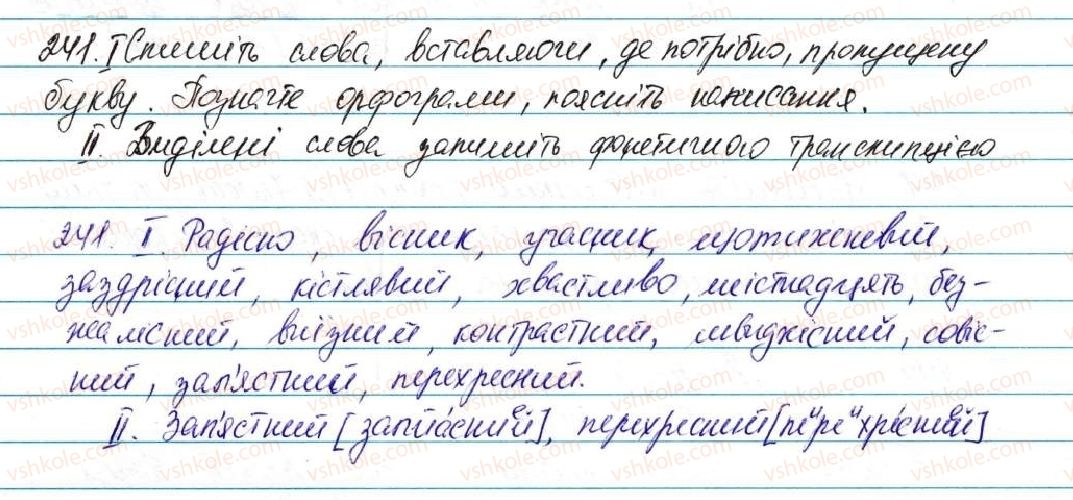 241. I Спишіть слова, вставляючи, де потрібно, пропущену
букву. Позначте орфограми, поясніть написання.
II. Виділені слова запишіть фонетичною транскипцією
241. I Радісно, вісник, учасник, щотижневий,
заздрісний, кістлявий, хвастливо, шістнадцять, без-
жалісний, виїзний, контрастний, швидкісний, совіс-
ний, зап'ястний, перехресний.
II. Зап'ястний [запйа́сний], перехресний [пеиреихре́сний]